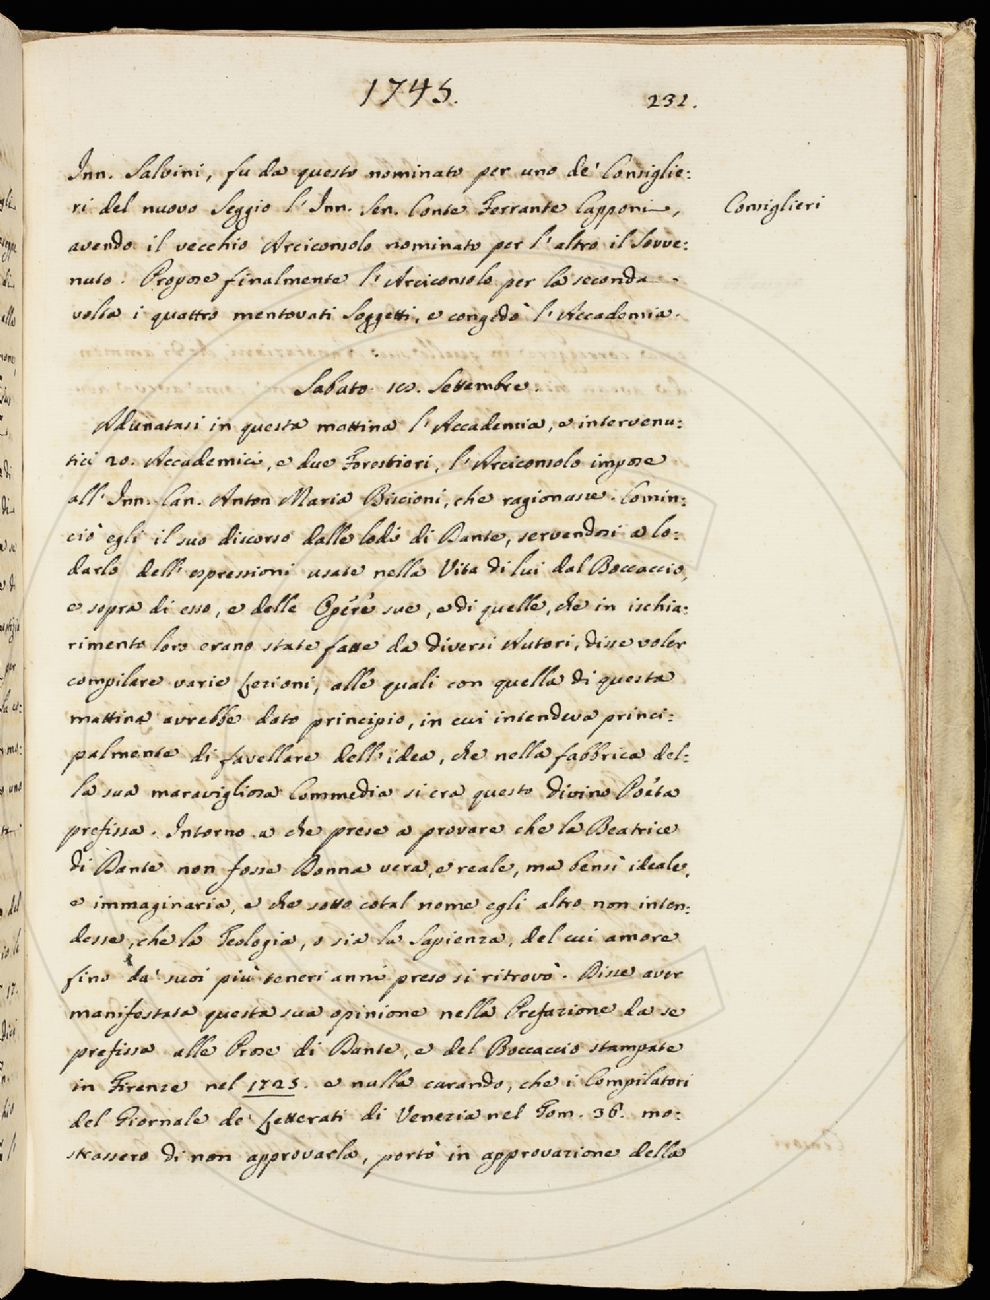 1745.
231.
Inn. Salvini, fu da questo nominato per uno de' Consiglie:
ri del nuovo Seggio l'Inn. Sen. Conte Ferrante Capponi,
Consiglieri
avendo il vecchio Arciconsolo nominato per l'altro il Sovve:
nuto. Propose finalmente l'Arciconsolo per la seconda
volta i quattro mentovati Soggetti, e congedò l'Accademia.
Sabato 10. Settembre.
Adunatasi in questa mattina l'Accademia, e intervenu:
tici 20. Accademici, e due Forestieri, l'Arciconsolo impose
all'Inn. Can. Anton Maria Biscioni, che ragionasse. Comin:
ciò egli il suo discorso dalle lodi di Dante, servendosi a lo:
darlo dell'espressioni usate nella Vita di lui dal Boccaccio,
e sopra di esso, e delle Opere sue, e di quelle, che in ischia:
rimento loro erano state fatte da diversi Autori, disse voler
compilare varie Lezioni, alle quali con quella di questa
mattina avrebbe dato principio, in cui intendeva princi:
palmente di favellare dell'idea, che nella fabbrica del:
la sua maravigliosa Commedia si era questo divino Poeta
prefissa. Intorno a che prese a provare che la Beatrice
di Dante non fosse Donna vera, e reale, ma bensì ideale,
e immaginaria, e che sotto cotal nome egli altro non inten:
desse, che la Teologia, o sia la Sapienza, del cui amore
fino da' suoi più teneri anni preso si ritrovò. Disse aver
manifestata questa sua opinione nella Prefazione da se
prefissa alle Prose di Dante, e del Boccaccio stampate
in Firenze nel 1723. e nulla curando, che i Compilatori
del Giornale de' Letterati di Venezia nel Tom. 36. mo:
strassero di non approvarla, portò in approvazione della